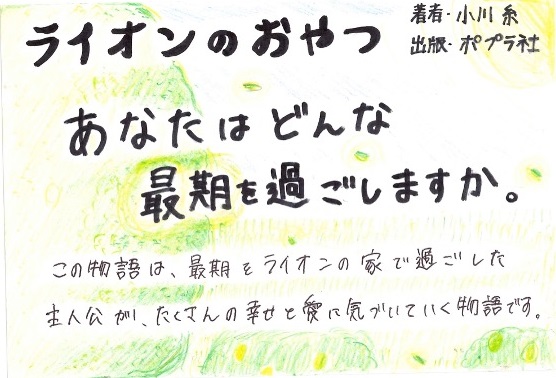 ライオンのおやつ
著者・小川 糸
出版・ポプラ社
あなたはどんな
最期を過ごしますか。
この物語は、最期をライオンの家で過ごした
主人公が、たくさんの幸せと愛に気づいていく物語です。